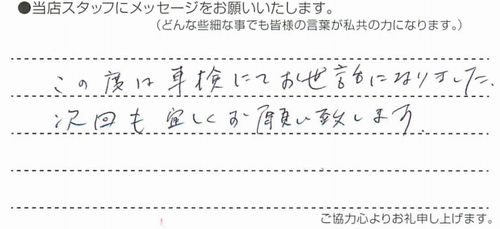 ●当店スタッフにメッセージをお願いいたします。
(どんな些細な事でも皆様の言葉が私共の力になります。)
この度は車検にてお世話になりました、
次回も宜しくお願い致します。
ご協力心よりお礼申し上げます。